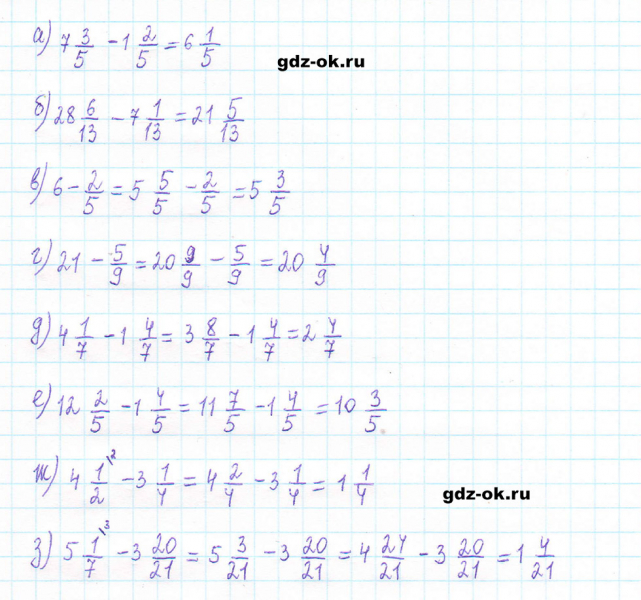 а) 7 3/5 - 1 2/5 = 6 1/5
gdz-ok.ru
б) 28 6/13 - 7 1/13 = 21 5/13
в) 6 - 2/5 = 5 5/5 - 2/5 = 5 3/5
г) 21 - 5/9 = 20 9/9 - 5/9 = 20 4/9
д) 4 1/7 - 1 4/7 = 3 8/7 - 1 4/7 = 2 4/7
е) 12 2/5 - 1 4/5 = 11 7/5 - 1 4/5 = 10 3/5
ж) 4 1\2/2 - 3 1/4 = 4 2/4 - 3 1/4 = 1 1/4
gdz-ok.ru
з) 5 1\3/7 - 3 20/21 = 5 3/21 - 3 20/21 = 4 24/21 - 3 20/21 = 1 4/21